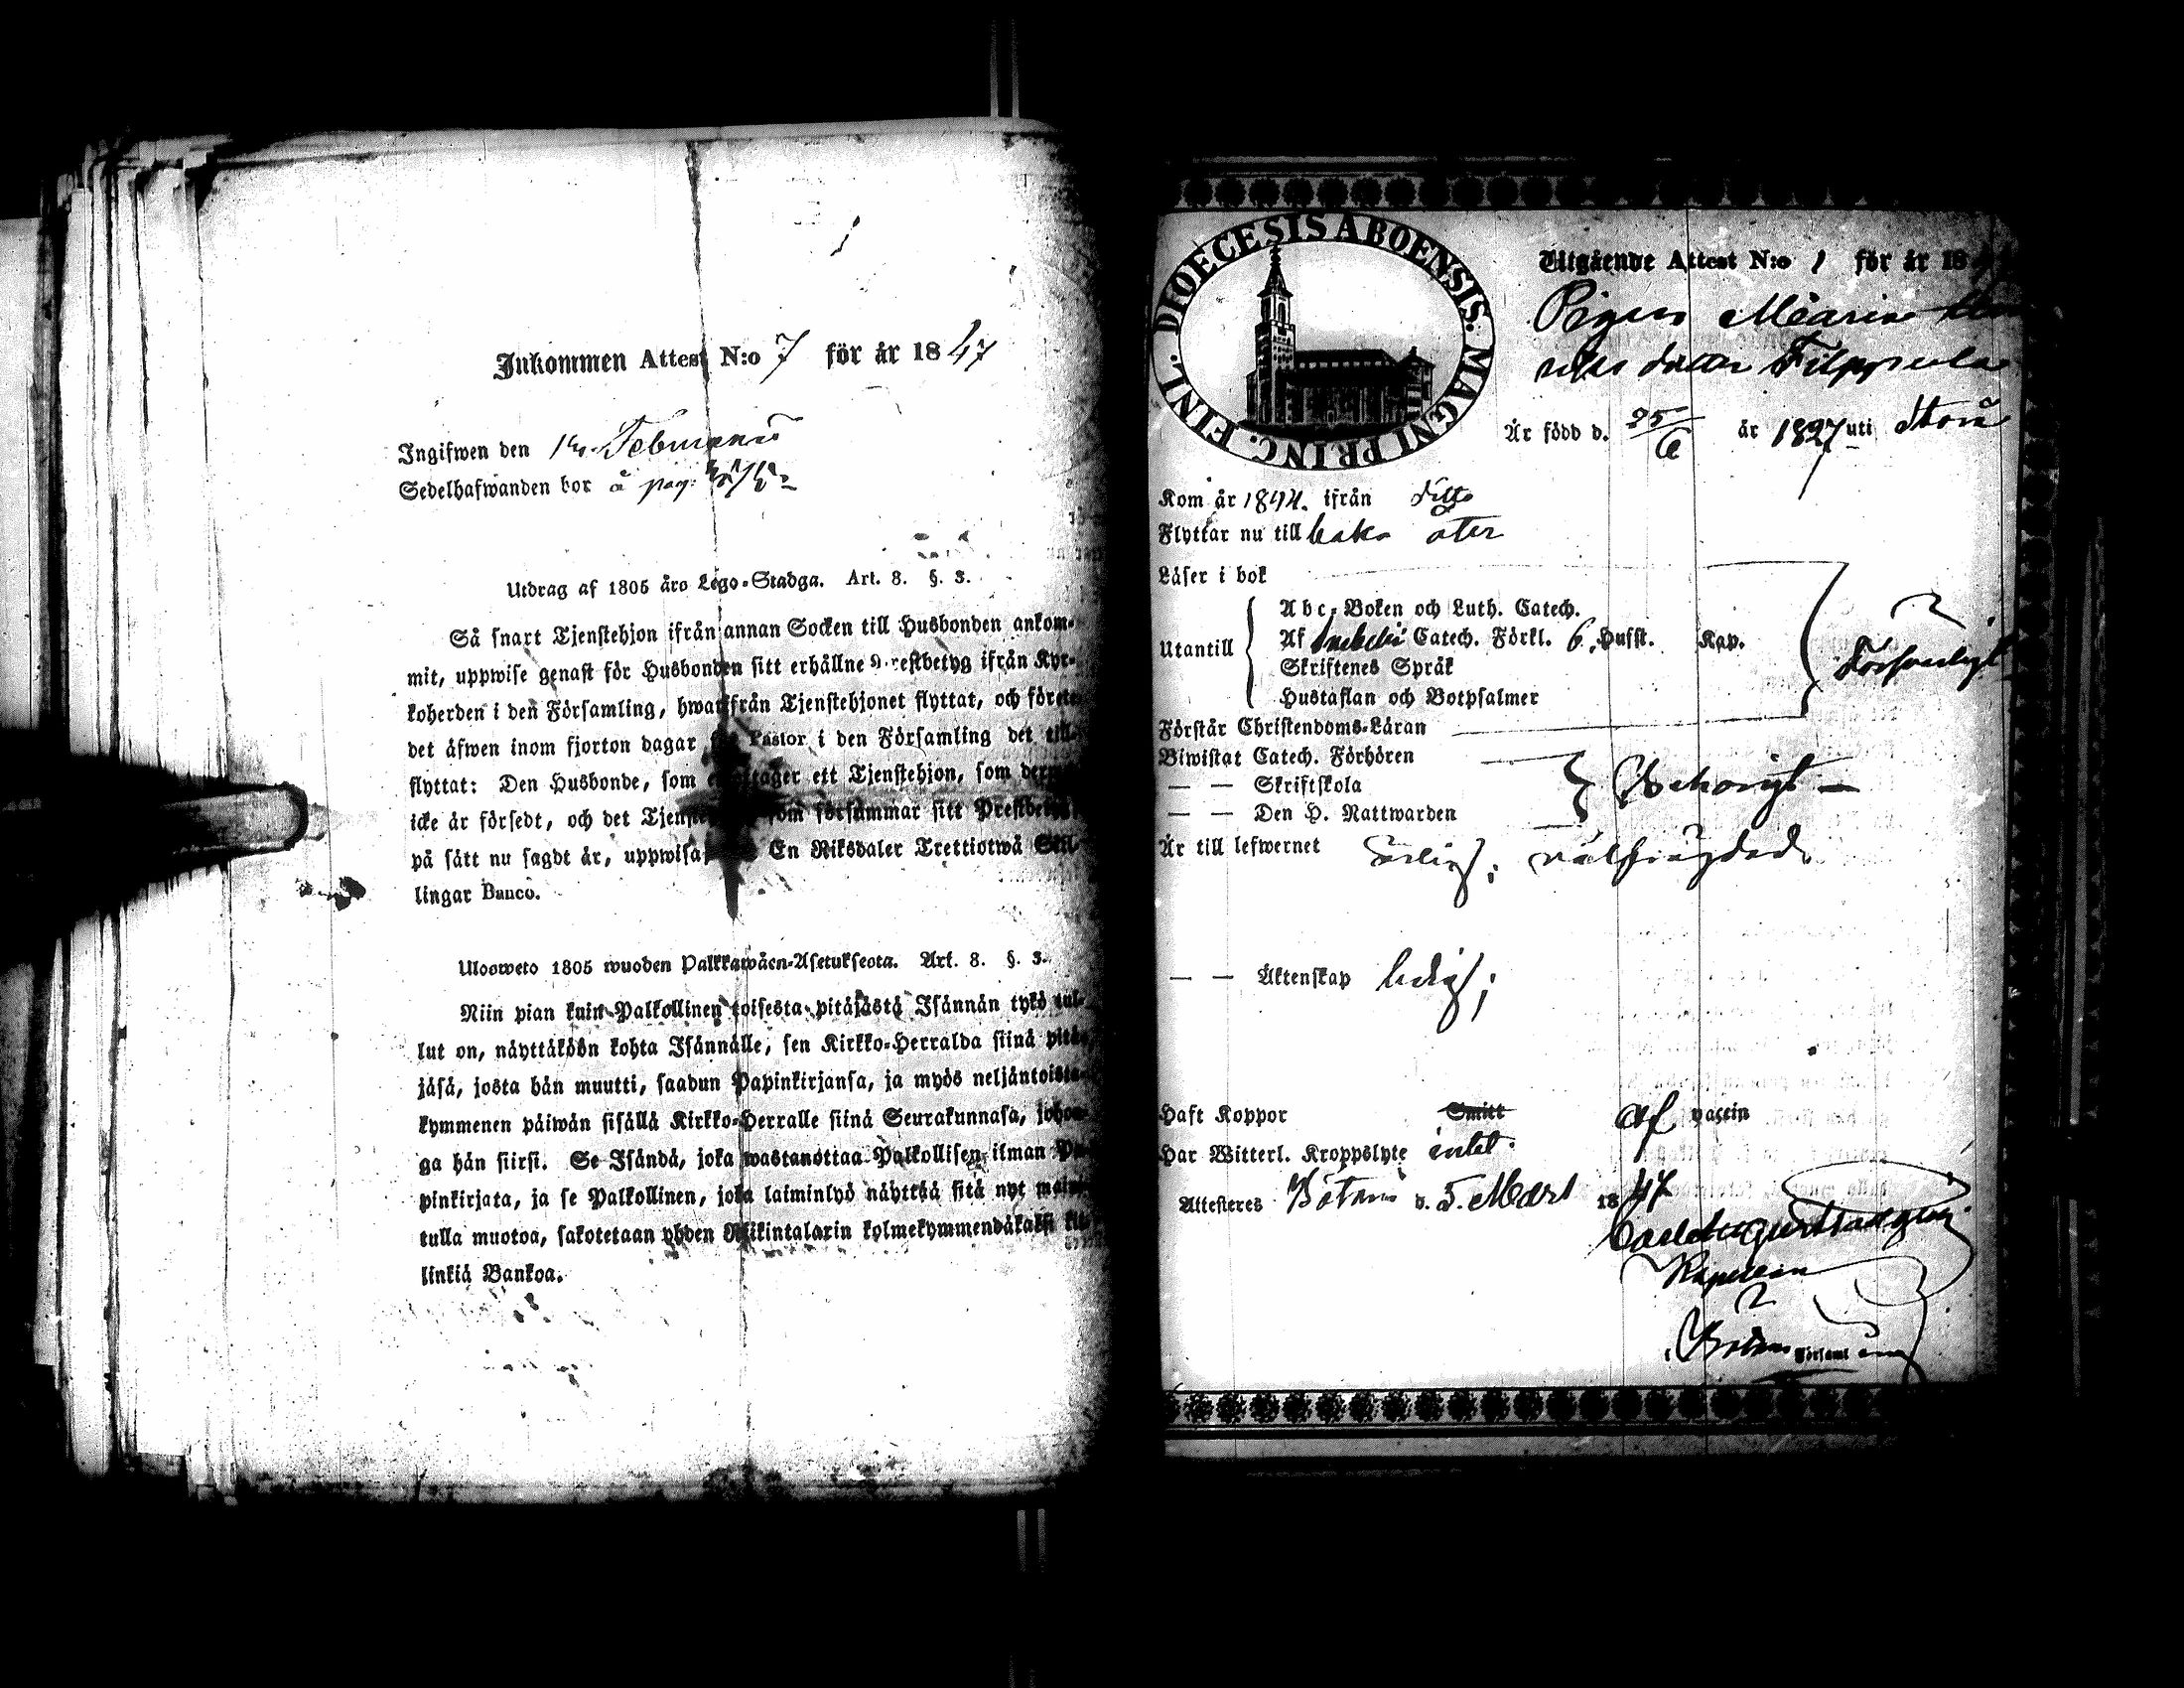 Inkommen Attest N:o 7 för år 1847
Ingifwen den 14 Februarii
Sedelhafwanden bor å pag:
Utdrag af 1805 års Lego-Stadga. Art. 8. §. 3.
Så snart Tjenstehjon ifrån annan Socken till Husbonden ankom-
mit, uppwise genast för Husbonden sitt erhållne Prestbetyg ifrån Kyr-
koherden i den Församling, hwarifrån Tjenstehjonet flyttat, och förete
det åfwen inom fjorton dagar för Pastor i den Församling det till-
flyttat: Den Husbonde, som emottager ett Tjenstehjon, som dermed
icke är försedt, och det Tjenstehjon som försummar sitt Prestbetyg
på sätt nu sagdt är, uppwisa, En Riksdaler Trettiotwå Skil-
lingar Banco.
Ulosweto 1805 wuoden Palkkawäen-Asetuksesta. Art. 8. §. 3.
Niin pian kuin Palkollinen toisesta pitäjästä Isännän tykö tul-
lut on, näyttäköön kohta Isännälle, sen Kirkko-Herralda siinä pitä-
jäsä, josta hän muutti, saadun Papinkirjansa, ja myös neljäntoista-
kymmenen päiwän sisällä Kirkko-Herralle siinä Seurakunnasa, johon-
ga hän siirsi. Se Isändä, joka wastanottaa Palkollisen ilman Pa-
pinkirjata, ja se Palkollinen, joka laiminlyö näyttää sitä nyt maini-
tulla muotoa, sakotetaan yhden Riikintalarin kolmekymmendäkaksi kil-
linkiä Bankoa.
DIOECESIS ABOENSIS. MAGNI PRINC. FINL.
Utgående Attest N:o 1 för år 18
Pigan Maria Hen
riks dotter Filppula
Är född d. 25/6 år 1827 uti
Kom år 1844. ifrån ditto
Flyttar nu till baka åter
Läser i bok
Abc-Boken och Luth. Catech.
Utantill Af Svebelii Catech. Förkl. 6. Husst. Kap.
Skriftenes Språk Försvarligt
Hustaflan och Botpsalmer
Förstår Christendoms-Läran
Biwistat Catech. Förhören
— — Skriftskola Behörigt —
— — Den H. Nattwarden
Är till lefwernet ärlig, välfrägdad
— — Äktenskap ledig;
Haft Koppor Smitt af vaccin
Har Witterl. Kroppslyte intet.
Attesteres Wötom d. 5. Mars 1847
Carl August
Kapellan
i Församl